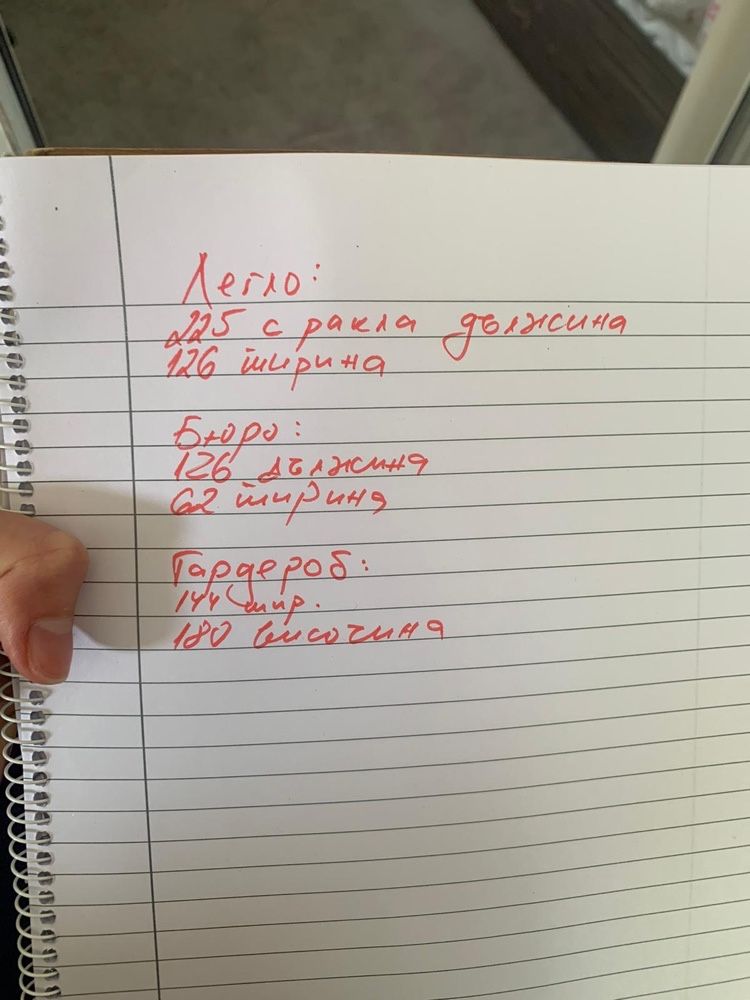 Легло:
225 с ракла дължина
126 ширина
Бюро:
126 дължина
62 ширина
Гардероб:
144 шир.
180 височина